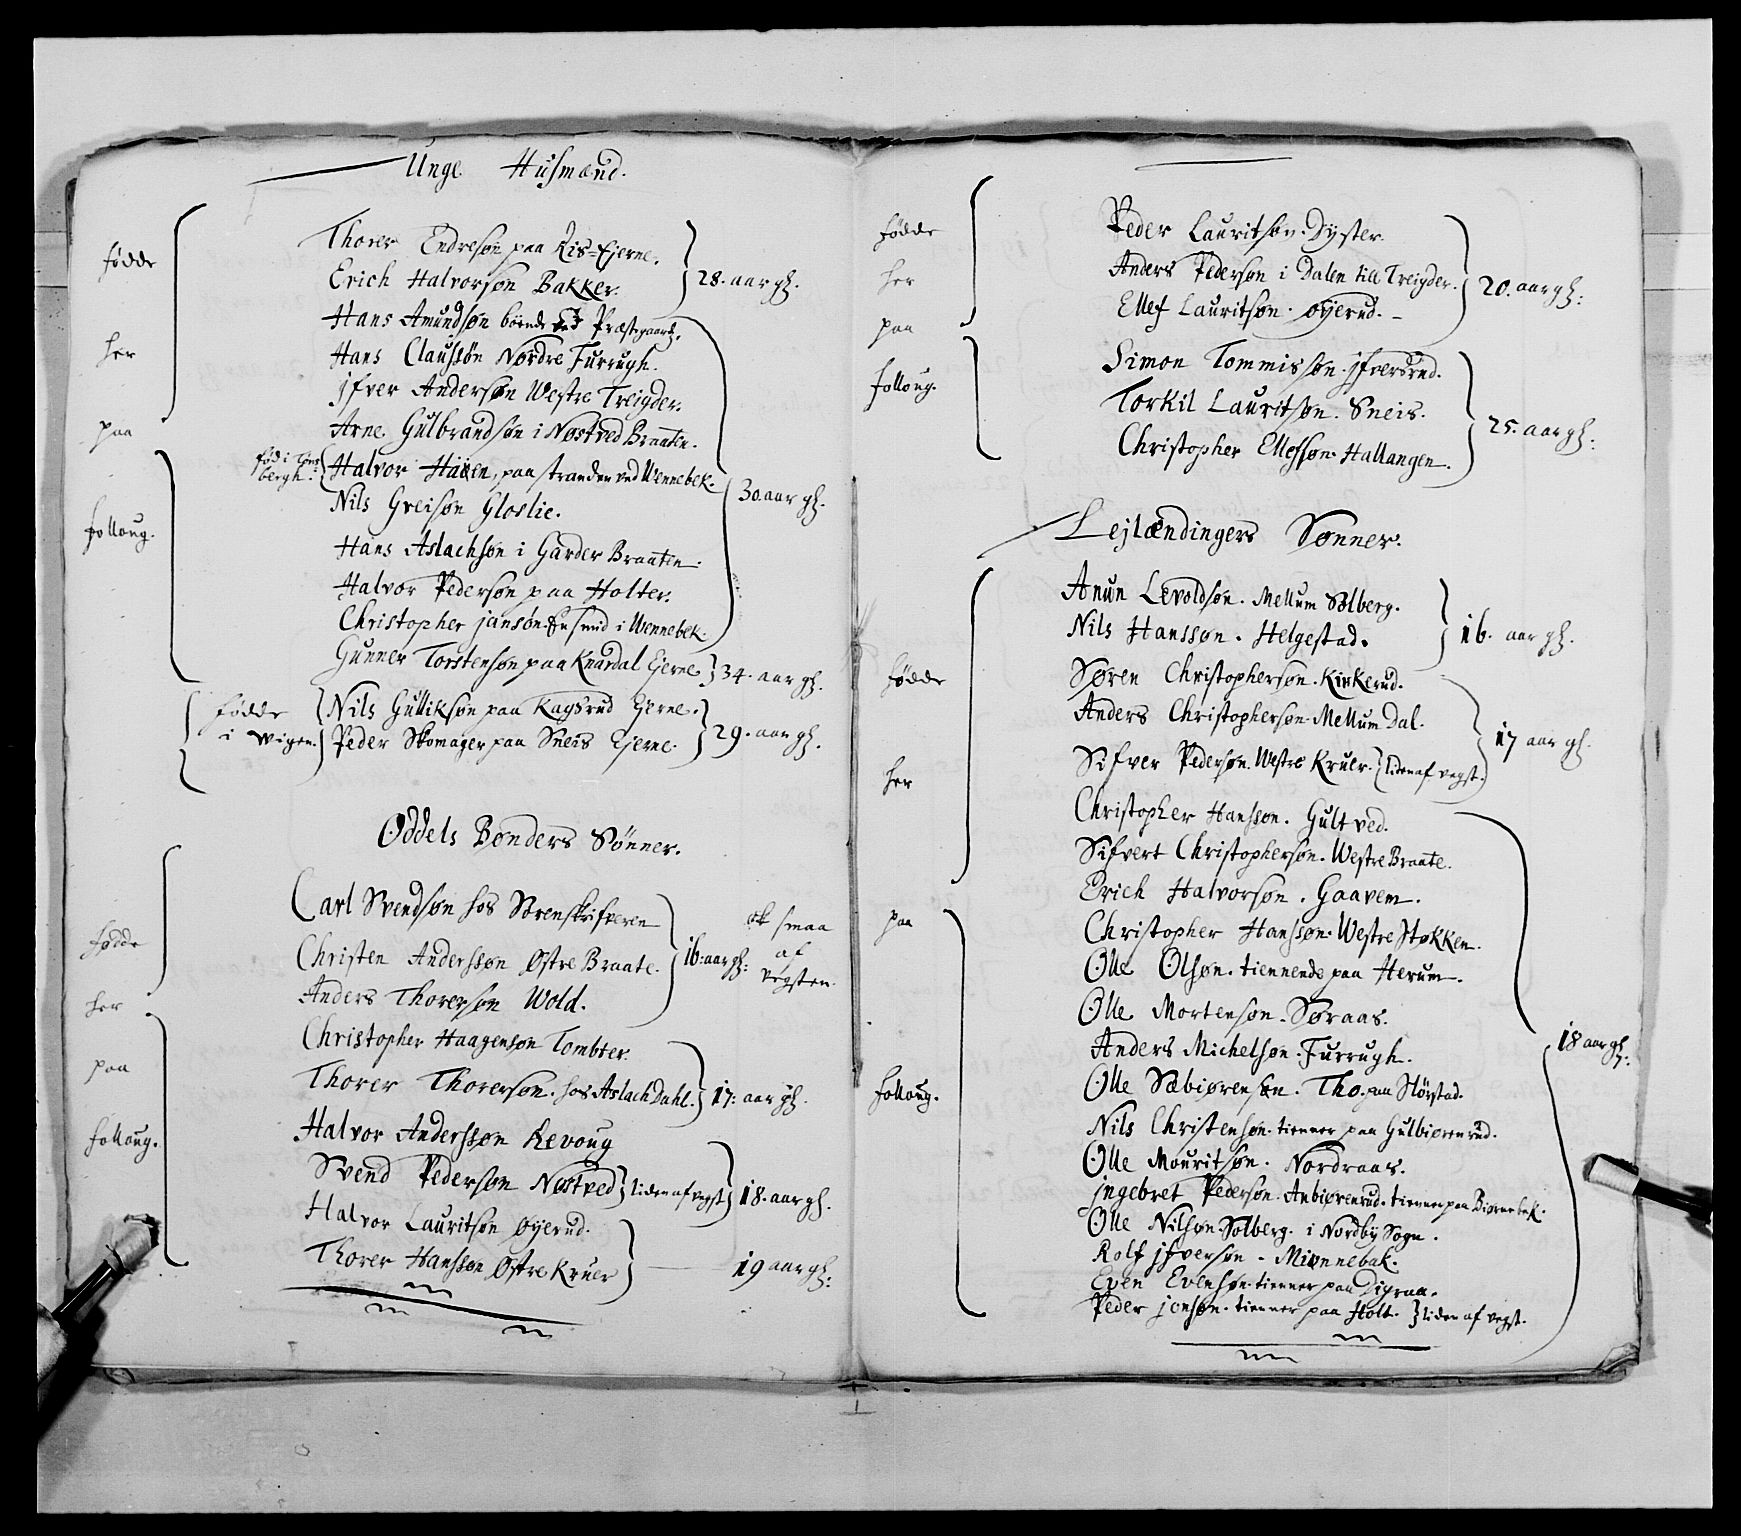 Unge Husmænd.
fødde her paa folloug.
Thorer Endresøn paa Ris=Ejerne.
Erich Halvorsøn Bakker. } 28. aar gl.
Hans Amundsøn böende ved Præstegaard.
Hans Claussøn Nordre Furrugh.
jfver Andersøn Westre Treigder.
Arne Gulbrandsøn i Nøstved Braaten.
fød i Tons bergh. { Halvor Haxen, paa stranden ved Wennebek.
Nils Greisøn Gloslie. } 30. aar gl.
Hans Aslachsøn i Garder Braaten.
Halvor Pedersøn paa Holter.
Christopher jansøn. En smid i Wennebek.
Gunner Torstensøn paa Knardal Ejerne } 34. aar gl.
fødde i Wigen. { Nils Gulliksøn paa Kagsrud Ejerne.
Peder Skomager paa Sneis Ejerne. } 29. aar gl.
Oddels Bønders Sønner.
fødde her paa folloug.
Carl Svendsøn hos Sorenskrifveren
Christen Anderssøn Østre Braate. } 16: aar gl: ok smaa af vegsten.
Anders Thorersøn Wold.
Christopher Haagensøn Tombter.
Thorer Thorersøn. hos Aslach Dahl. } 17: aar gl.
Halvor Anderssøn Revoug
Svend Pedersøn Nøstved } liden af vegst } 18. aar gl.
Halvor Lauritsøn Øyerud.
Thorer Hanssøn Østre Kruer } 19 aar gl:
fødde her paa folloug.
Peder Lauritsøn. Dyster.
Anders Pedersøn i Dalen till Treigder. } 20. aar gl:
Ellef Lauritsøn. Øyerud.
Simon Tommissøn. jfversrud.
Torkil Lauritsøn. Sneis. } 25. aar gl:
Christopher Ellefsøn. Hallangen.
Lejlændingers Sønner.
fødde her paa folloug.
Anun Levoldsøn. Mellum Solberg.
Nils Hanssøn. Helgestad. } 16. aar gl.
Søren Christophersøn. Kirkerud.
Anders Christophersøn. Mellum Dal. } 17 aar gl.
Sifver Pedersøn. Westre Kruer. { liden af vegst.
Christopher Hanssøn. Gultved.
Sifvert Christophersøn. Westre Braate.
Erich Halvorsøn. Gaavem.
Christopher Hanssøn. Westre Støkken.
Olle Olsøn. tiennende paa Herum.
Olle Mortensøn. Søraas.
Anders Michelsøn. Furrugh. 18 aar gl:
Olle Sæbiørensøn. Tho. paa Störstad.
Nils Christensøn. tienner paa Gulbiørenrud.
Olle Mouritsøn. Nordraas.
jngebret Pedersøn. Anbiørenrud. tienner paa Biørnebek.
Olle Nilsøn. Solberg. i Nordby Sogn.
Rolf jfversøn - Miønnebak.
Even Evensøn. tienner paa Digraa.
Peder jonsøn. tienner paa Holt. } liden af vegst.